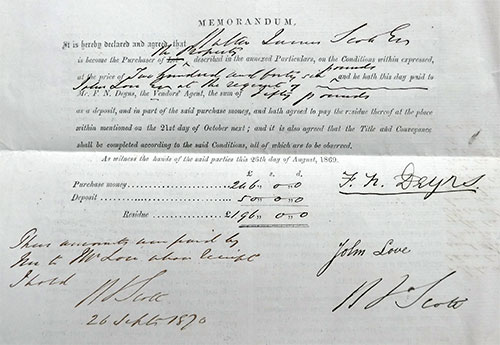 MEMORANDUM.
It is hereby declared and agreed, that Walter James Scott Esq
is become the Purchaser of the Property described in the annexed Particulars, on the Conditions within expressed,
at the price of Two hundred and forty six pounds and he hath this day paid to
John Love Esq at the request of
Mr. F. N. Deyns, the Vendors' Agent, the sum of Fifty pounds
as a deposit, and in part of the said purchase money, and hath agreed to pay the residue thereof at the place
within mentioned on the 21st day of October next; and it is also agreed that the Title and Conveyance
shall be completed according to the said Conditions, all of which are to be observed.
As witness the hands of the said parties this 25th day of August, 1869.
£ s. d.
Purchase money 246 " 0 " 0
Deposit 50 " 0 " 0
Residue £196 " 0 " 0
F. N. Deyns.
These accounts were paid by
me to Mr Love whose receipt
I hold
W J Scott
26 Septr 1870
John Love
W Js Scott